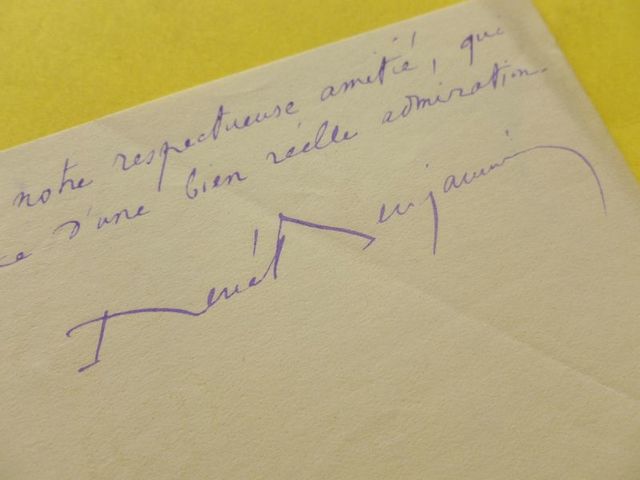 notre respectueuse amitié, qui
d'une bien réelle admiration.
René Benjamin